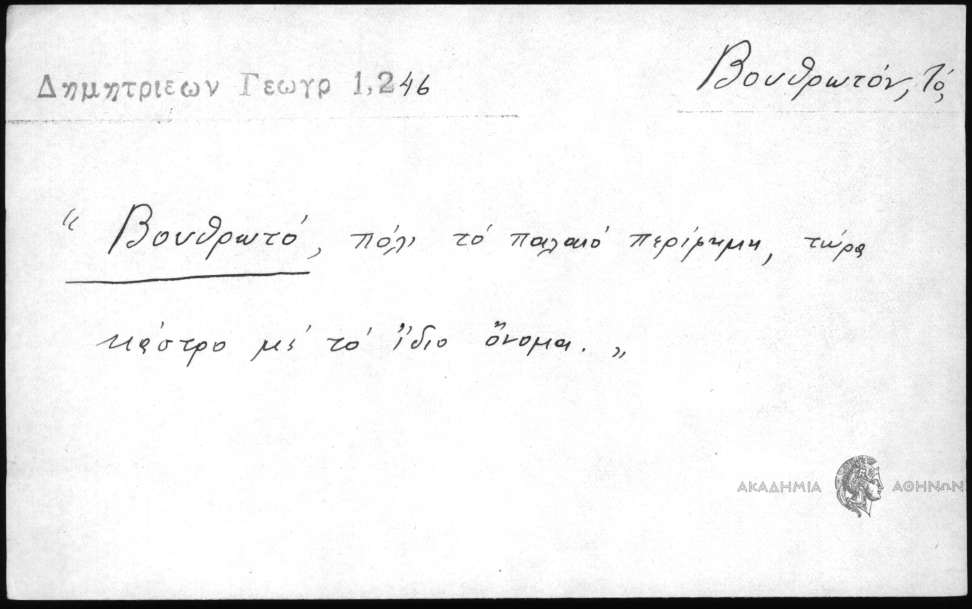 Δημητριεων Γεωγρ 1,246
Βουθρωτόν, τό,
“ Βουθρωτό, πόλι τό παλαιό περίφημη, τώρα
κάστρο μέ τό ἴδιο ὄνομα. „
ΑΚΑΔΗΜΙΑ ΑΘΗΝΩΝ